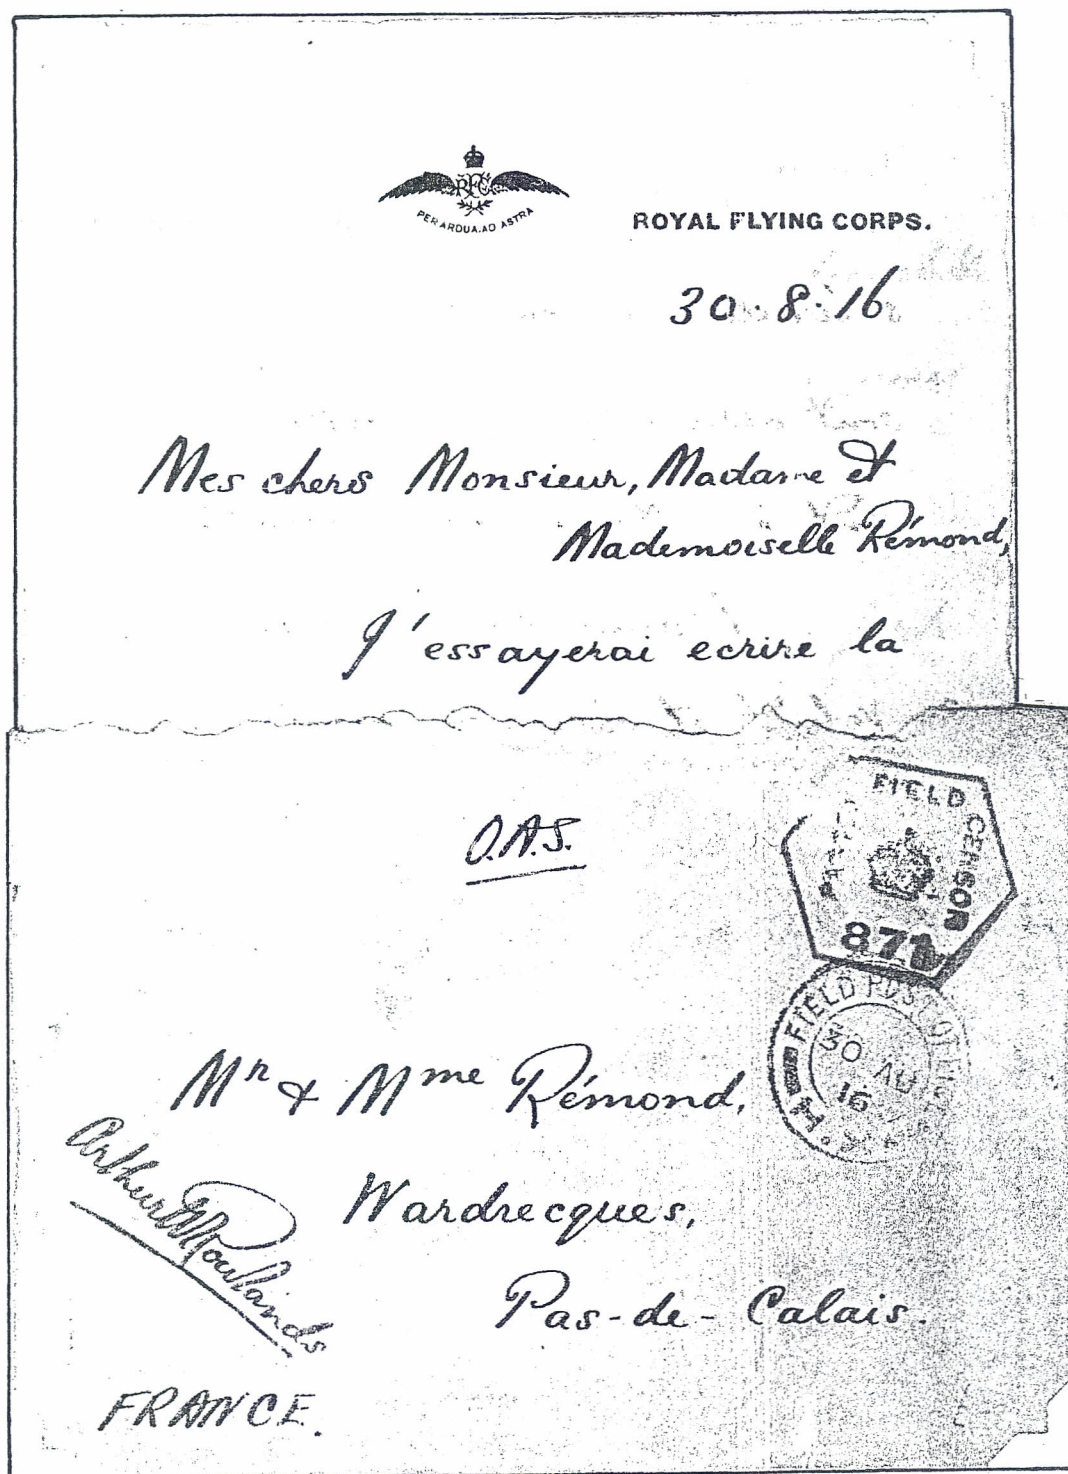 RFC
PER ARDUA AD ASTRA
ROYAL FLYING CORPS.
30.8.16
Mes chers Monsieur, Madame et
Mademoiselle Rémond,
J'essayerai ecrire la
O.A.S.
FIELD CENSOR
871
FIELD POST OFFICE
30 AU
16
Mr & Mme Rémond,
Wardrecques,
Pas-de-Calais.
Arthur Rowlands
FRANCE.